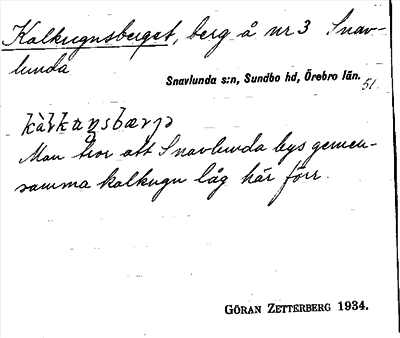 Kalkugnsberget, berg å nr 3 Snav-
lunda
Snavlunda s:n, Sundbo hd, Örebro län.
51.
Man tror att Snavlunda bys gemen-
samma kalkugn låg här förr.
GÖRAN ZETTERBERG 1934.